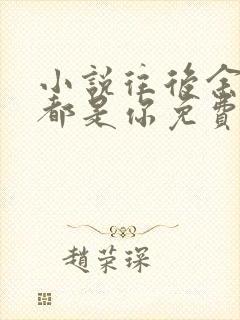 小說往後余
都是你免費
趙荣琛